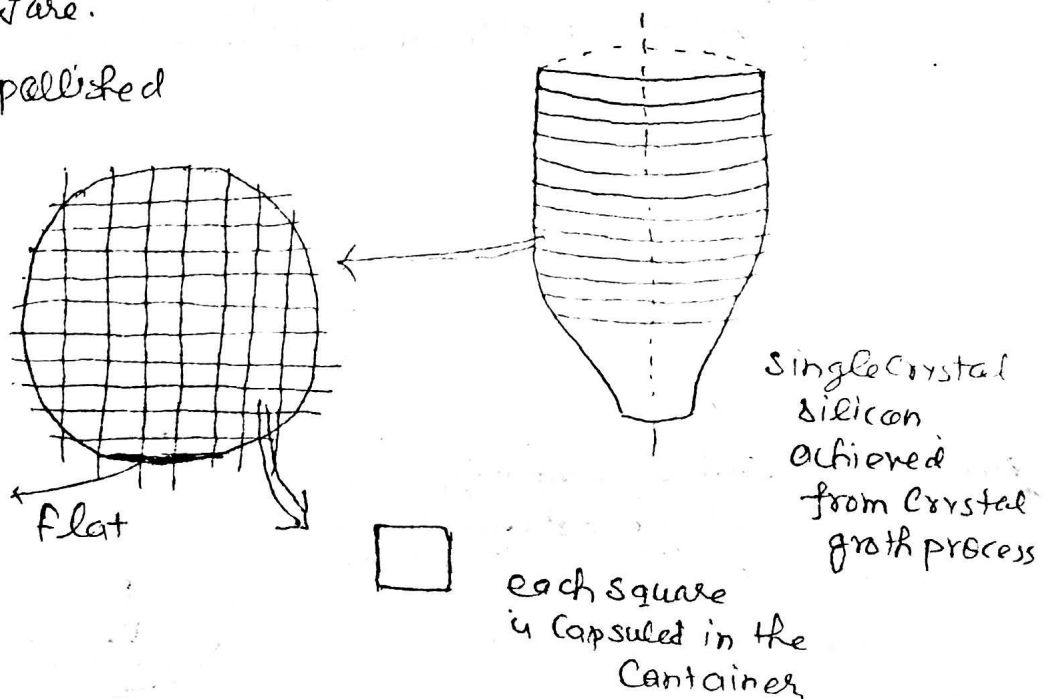 are.
pollished
Flat
single Crystal
silicon
achieved
from Crystal
groth process
each square
is Capsuled in the
Container